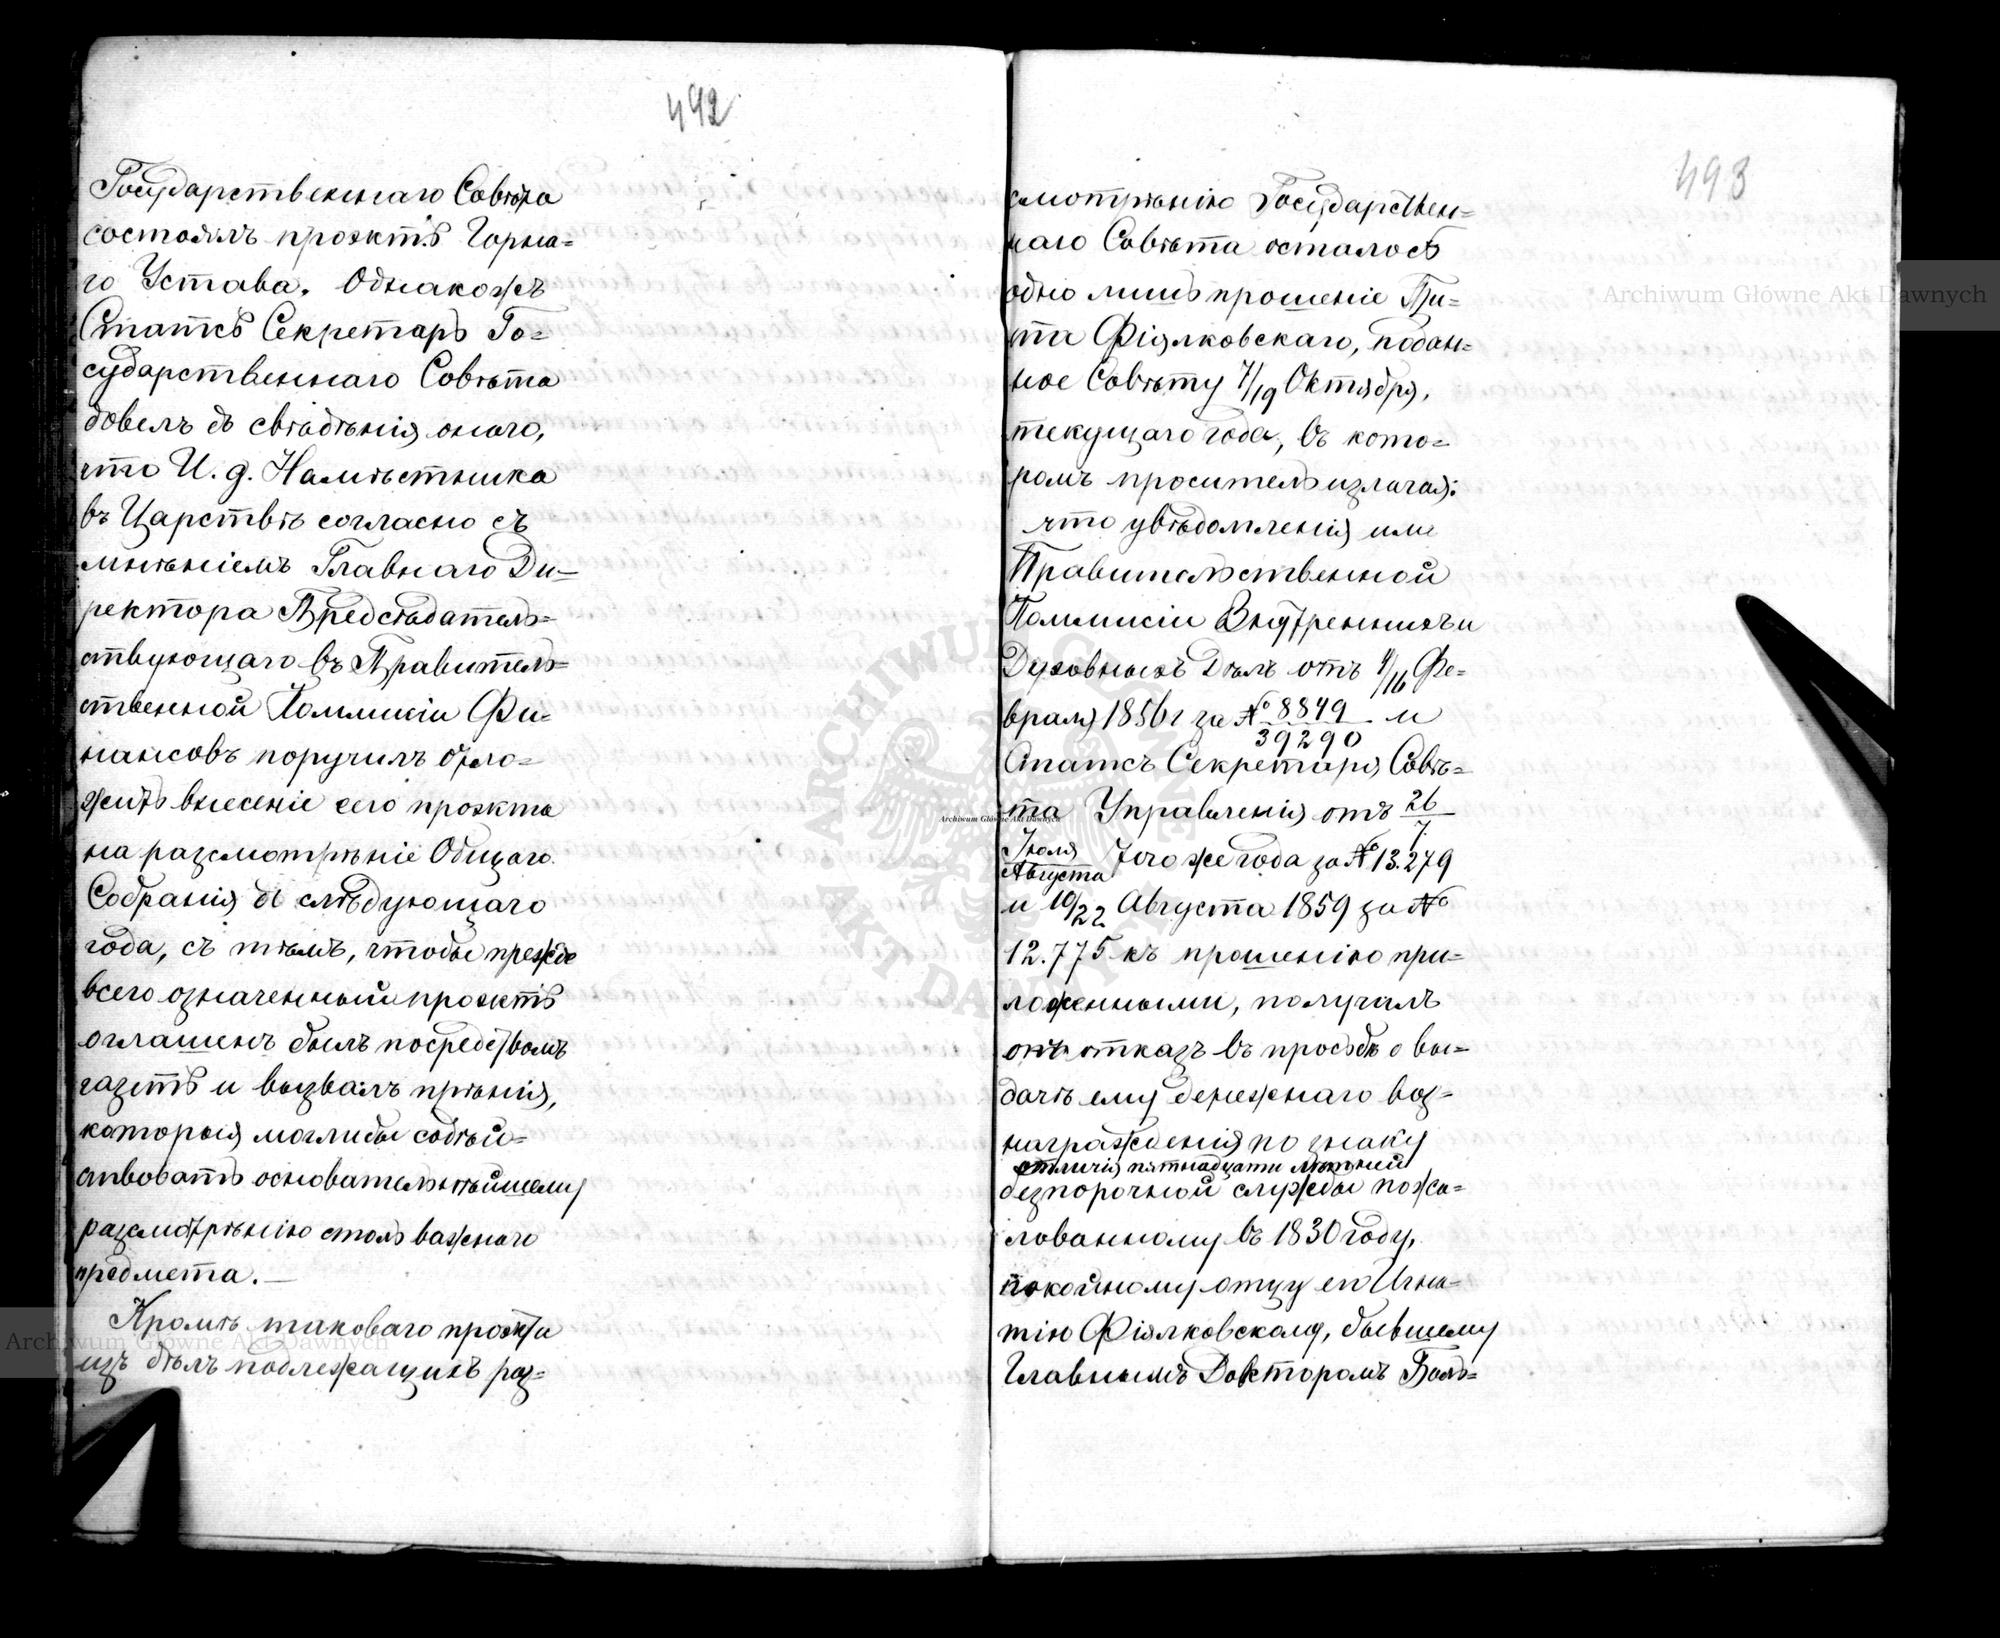 492
Государственнаго Совѣта
состоялъ проэктъ Горна=
го Устава. Однакожъ
Статсъ Секретарь Го=
сударственнаго Совѣта
довелъ до свѣдѣнія онаго,
что И. д. Намѣстника
въ Царствѣ согласно съ
мнѣніемъ Главнаго Ди=
ректора Предсѣдатель=
ствующаго въ Правитель=
ственной Коммисіи Фи=
нансовъ поручилъ отло=
жить внесеніе сего проэкта
на разсмотрѣніе Общаго
Собранія до слѣдующаго
года, съ тѣмъ, чтобы прежде
всего означенный проэктъ
оглашенъ былъ посредствомъ
газетъ и вызвалъ пренія,
которыя моглибы содѣй=
ствовать основательнѣйшему
разсмотрѣнію столь важнаго
предмета.—
Кромѣ таковаго проэкта
изъ дѣлъ подлежащихъ раз=
493
смотрѣнію Государствен=
наго Совѣта осталось
одно лишь прошеніе Ти=
та Фіялковскаго, подан=
ное Совѣту 7/19 Октября,
текущаго года, въ кото=
ромъ проситель излагая:
что увѣдомленія ими
Правительственной
Коммисіи Внутреннихъ и
Духовныхъ Дѣлъ отъ 4/16 Фе=
враля 1856 г за № 8849/39290 и
Статсъ Секретаря Совѣ=
та Управленія отъ 26/7
Іюля/Августа того же года за № 13.279
и 10/22 Августа 1859 за №
12.775 къ прошенію при=
ложенными, получалъ
онъ отказъ въ просьбѣ о вы=
дачѣ ему денежнаго воз=
награжденія по знаку
отличія пятнадцати лѣтней
безпорочной службы пожа=
лованному въ 1830 году,
покойному отцу его Игна=
тію Фіялковскому, бывшему
Главнымъ Докторомъ Боль=
Archiwum Główne Akt Dawnych
Archiwum Główne Akt Dawnych
Archiwum Główne Akt Dawnych
ARCHIWUM GŁÓWNE AKT DAWNYCH